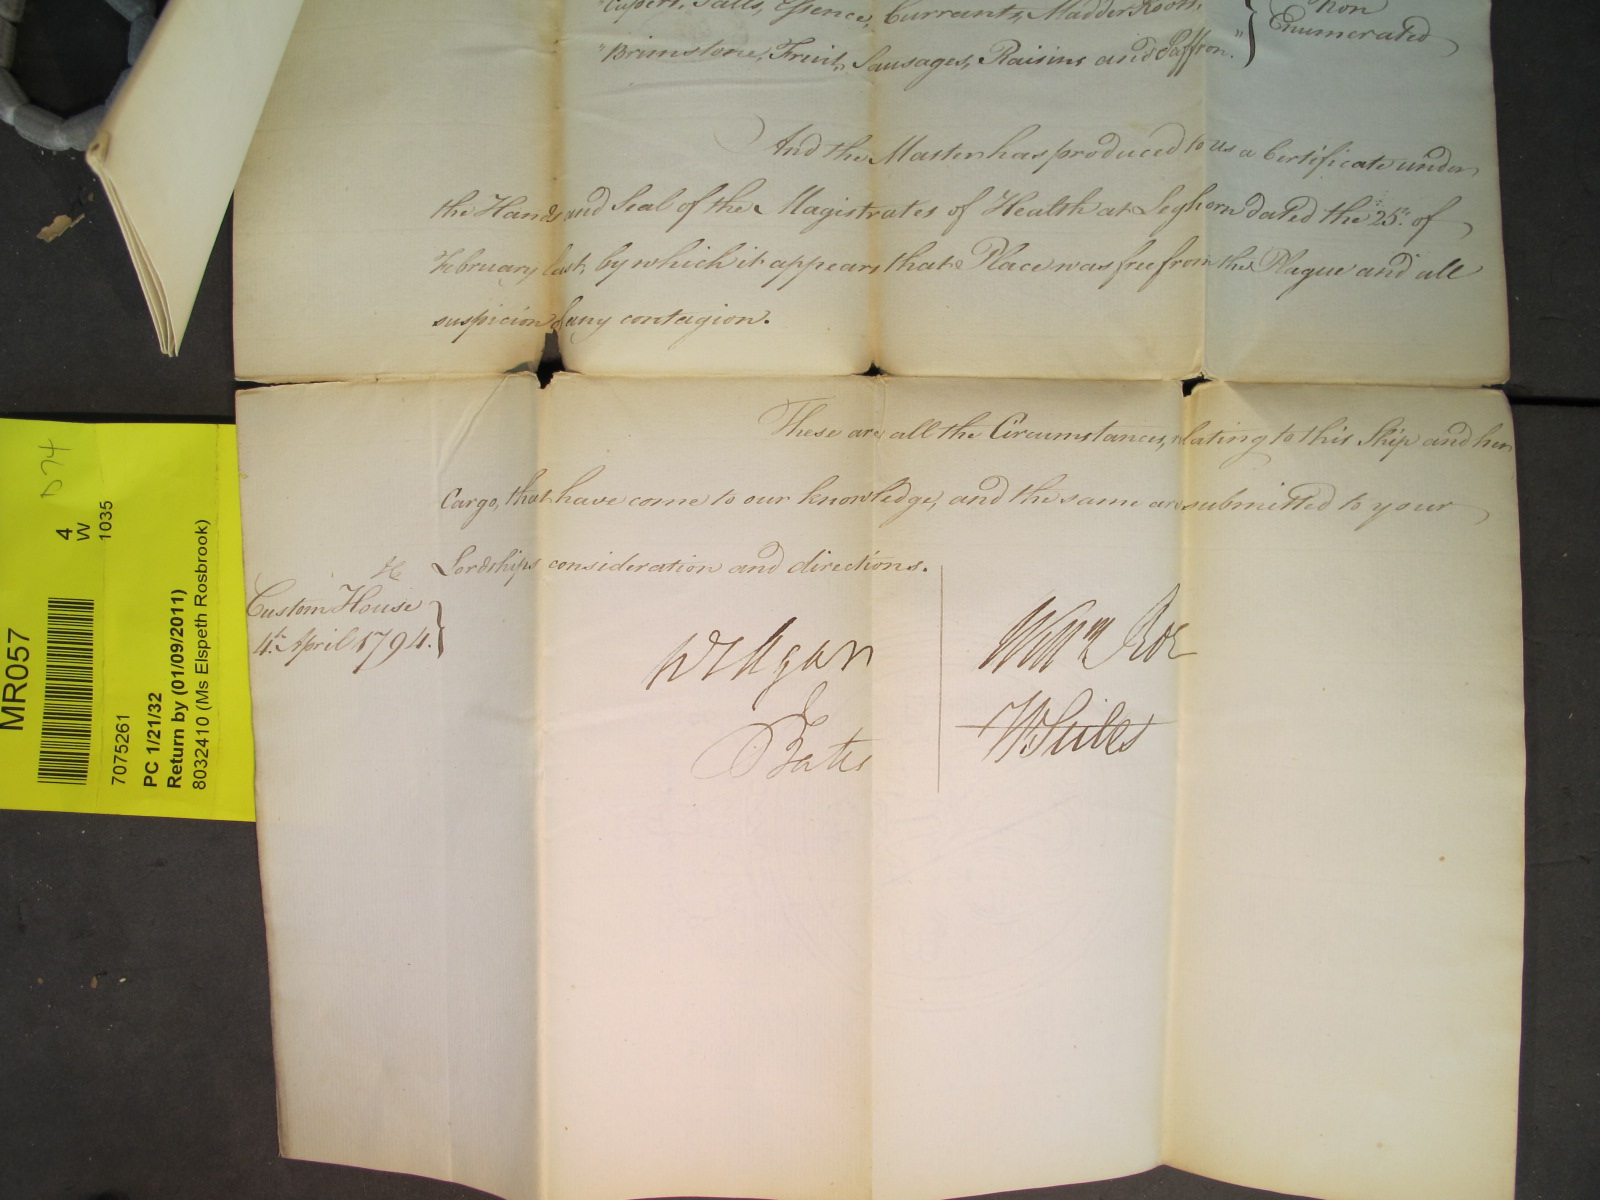 Salts, Essence, Currants, Madder Roots,
"Brimstone, Fruit, Sausages, Raisins and Saffron."
Non
Enumerated
And the Master has produced to us a Certificate under
the Hands and Seal of the Magistrates of Health at Leghorn dated the 25th. of
February last, by which it appears that Place was free from the Plague and all
suspicion of any contagion.
These are all the Circumstances, relating to this Ship and her
Cargo, that have come to our knowledge, and the same are submitted to your
Lordships consideration and directions.
Custom House
4th. April 1794.
Wm Roe
J Bates
W Stiles
MR057
7075261
PC 1/21/32
Return by (01/09/2011)
8032410 (Ms Elspeth Rosbrook)
4
W
1035
D74